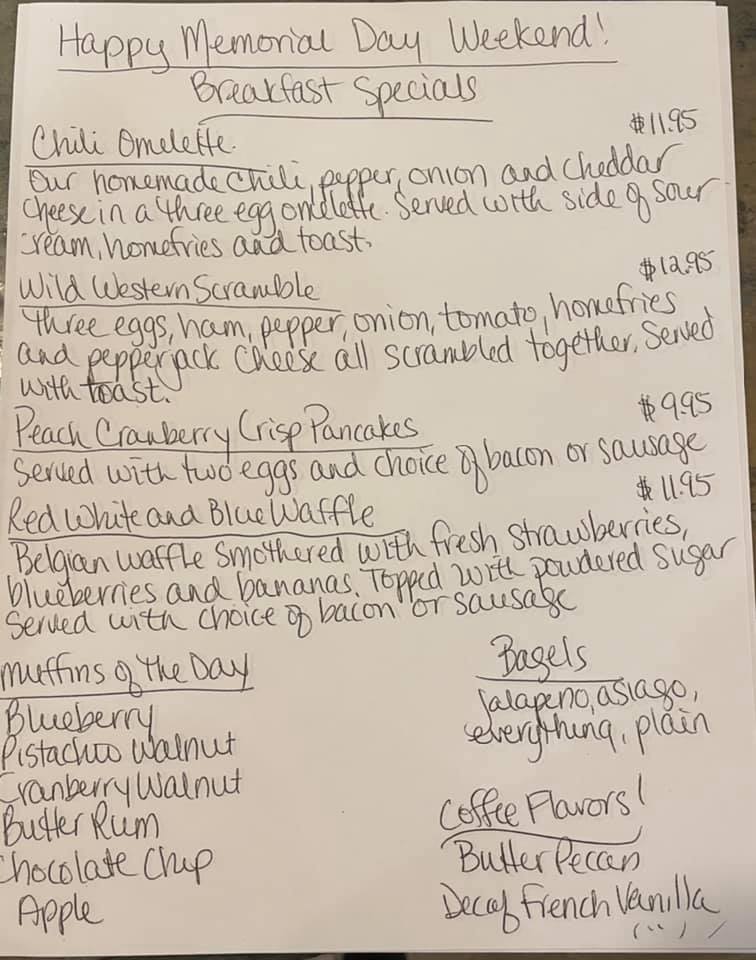 Happy Memorial Day Weekend!
Breakfast Specials
Chili Omelette. $11.95
Our homemade chili, pepper, onion and cheddar
cheese in a three egg omelette. Served with side of sour
cream, homefries and toast.
Wild Western Scramble $12.95
Three eggs, ham, pepper, onion, tomato, homefries
and pepperjack cheese all scrambled together. Served
with toast.
Peach Cranberry Crisp Pancakes $9.95
Served with two eggs and choice of bacon or sausage
Red White and Blue Waffle $11.95
Belgian waffle smothered with fresh strawberries,
blueberries and bananas. Topped with powdered sugar
Served with choice of bacon or sausage
Muffins of The Day
Blueberry
Pistachio Walnut
Cranberry Walnut
Butter Rum
Chocolate Chip
Apple
Bagels
Jalapeno, asiago,
everything, plain
Coffee Flavors!
Butter Pecan
Decaf French Vanilla